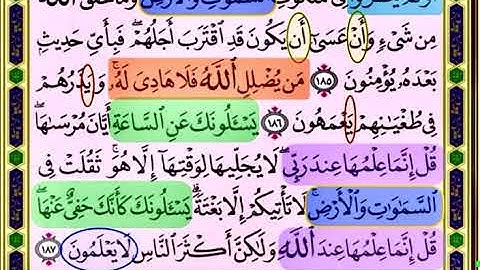 أَوَلَمْ يَنظُرُوا۟ فِى مَلَكُوتِ ٱلسَّمَٰوَٰتِ وَٱلْأَرْضِ وَمَا خَلَقَ ٱللَّهُ
مِن شَىْءٍ وَأَنْ عَسَىٰٓ أَن يَكُونَ قَدِ ٱقْتَرَبَ أَجَلُهُمْ ۖ فَبِأَىِّ حَدِيثٍۭ
بَعْدَهُۥ يُؤْمِنُونَ ١٨٥ مَن يُضْلِلِ ٱللَّهُ فَلَا هَادِىَ لَهُۥ ۚ وَيَذَرُهُمْ
فِى طُغْيَٰنِهِمْ يَعْمَهُونَ ١٨٦ يَسْـَٔلُونَكَ عَنِ ٱلسَّاعَةِ أَيَّانَ مُرْسَىٰهَا ۖ
قُلْ إِنَّمَا عِلْمُهَا عِندَ رَبِّى ۖ لَا يُجَلِّيهَا لِوَقْتِهَآ إِلَّا هُوَ ۚ ثَقُلَتْ فِى
ٱلسَّمَٰوَٰتِ وَٱلْأَرْضِ ۚ لَا تَأْتِيكُمْ إِلَّا بَغْتَةً ۗ يَسْـَٔلُونَكَ كَأَنَّكَ حَفِىٌّ عَنْهَا ۖ
قُلْ إِنَّمَا عِلْمُهَا عِندَ ٱللَّهِ وَلَٰكِنَّ أَكْثَرَ ٱلنَّاسِ لَا يَعْلَمُونَ ١٨٧